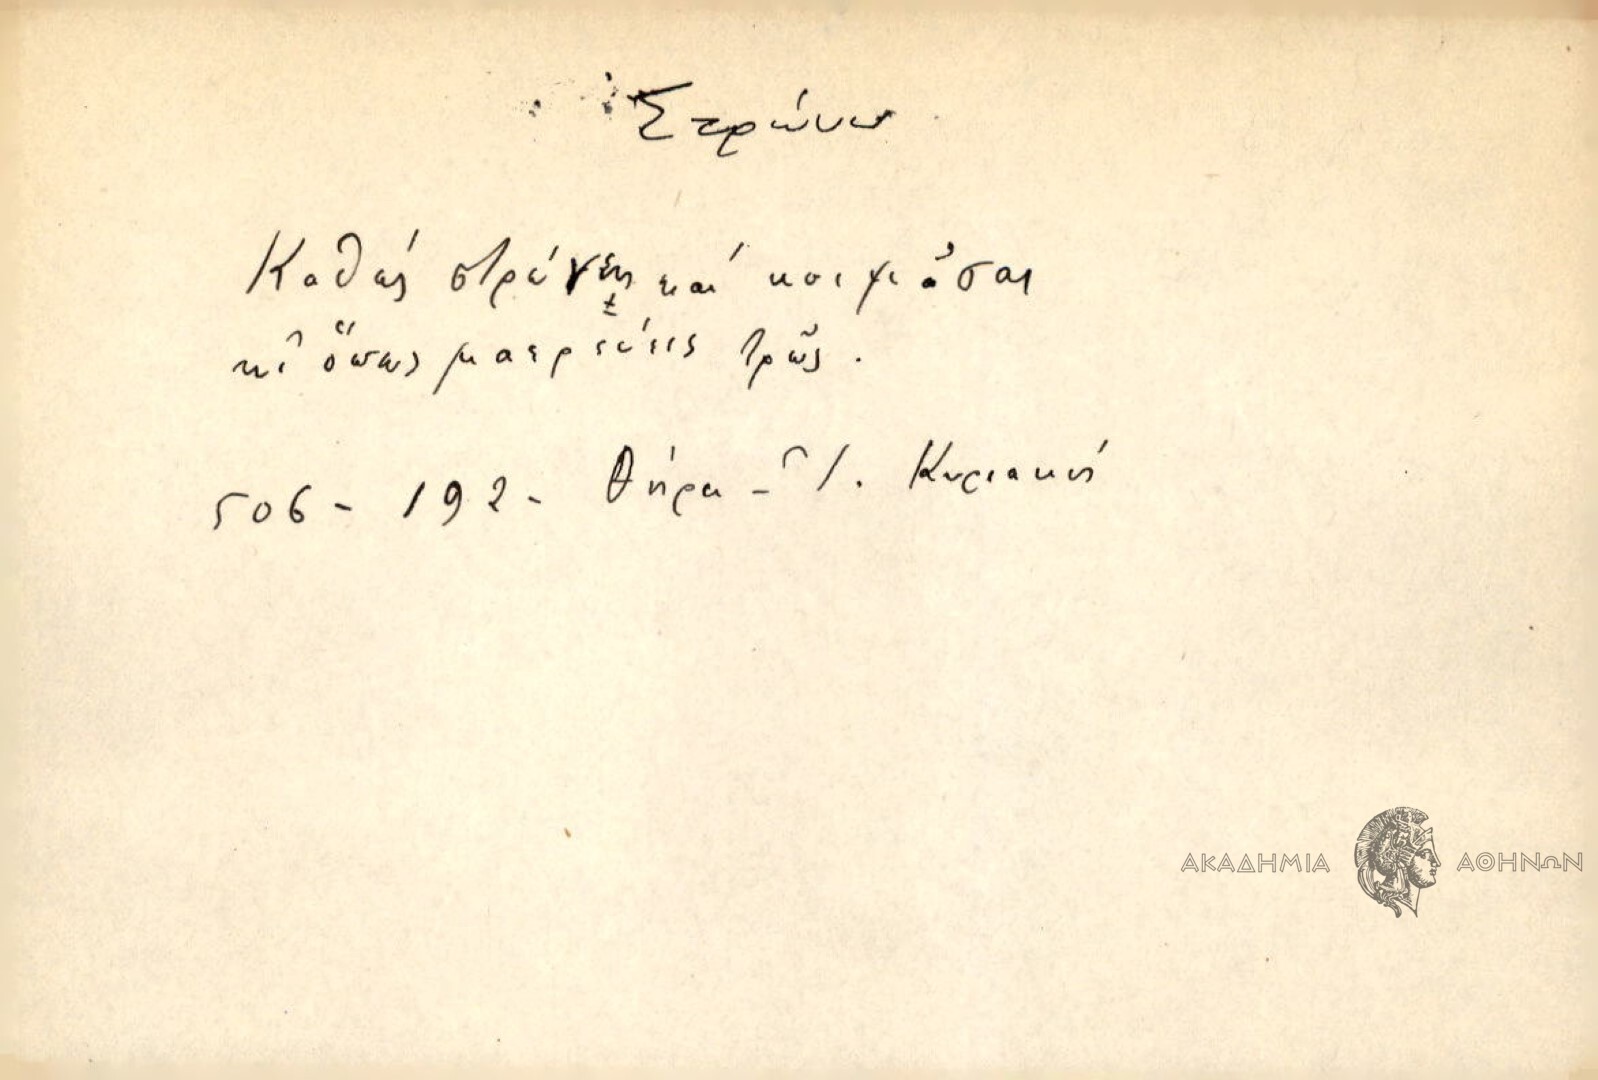 Στρώνω
Καθώς στρώνεις καὶ κοιμᾶσαι
κι ὅπως μαερεύεις τρῶς.
506 - 192 - Θήρα - Ἰ. Κυριακού
ΑΚΑΔΗΜΙΑ ΑΘΗΝΩΝ